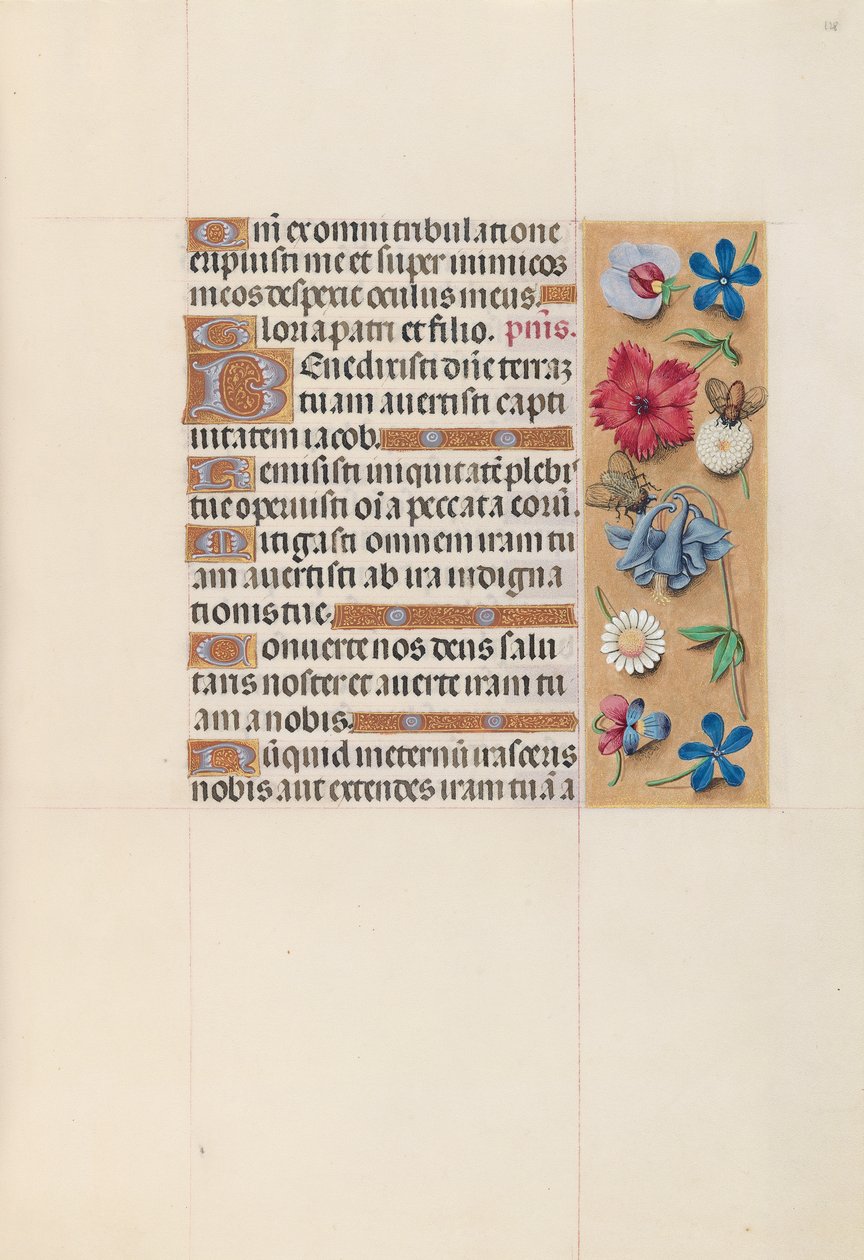 118
Qm̄ ex omni tribulatione
eripuisti me et super inimicos
meos despexit oculus meus.
Gloria patri et filio. pm̄s.
Benedixisti dn̄e terraʒ
tuam auertisti capti
uitatem iacob.
Remisisti iniquitatē plebis
tue operuisti oīa peccata eorū.
Mitigasti omnem iram tu
am auertisti ab ira indigna
tionis tue.
Conuerte nos deus salu
taris noster et auerte iram tu
am a nobis.
Nūquid in eternū irasceris
nobis aut extendes iram tuā a